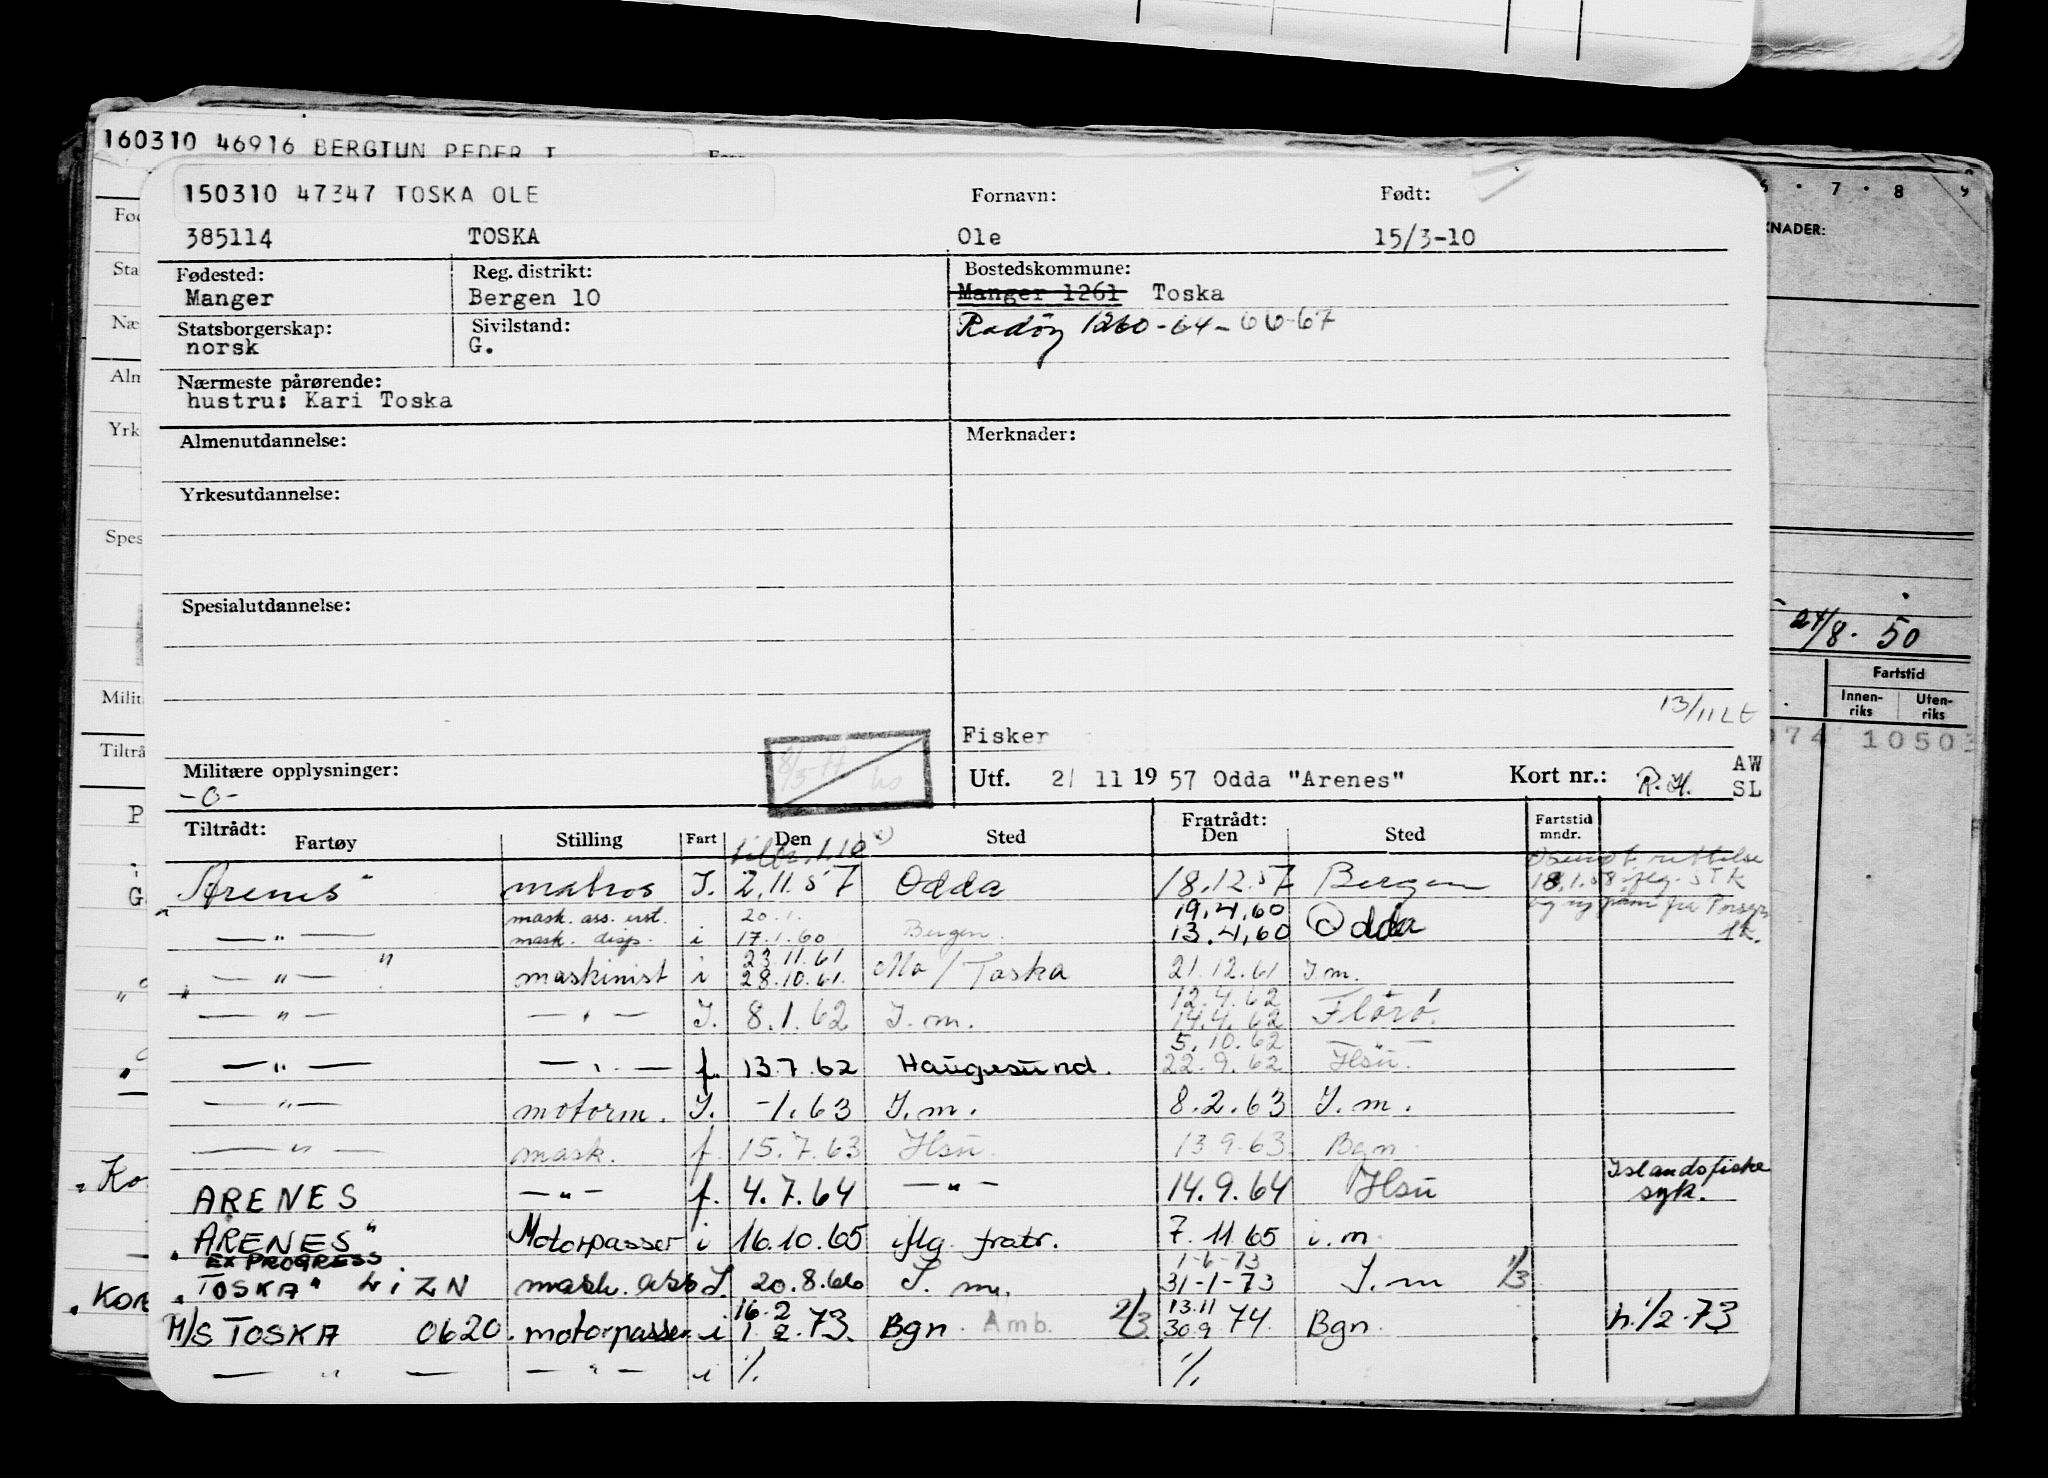 160310 46916 BERGTUN PEDER I
150310 47347 TOSKA OLE
Fornavn: Født:
385114 TOSKA Ole 15/3-10
Fødested: Reg. distrikt: Bostedskommune:
Manger Bergen 10 Manger 1261 Toska
Statsborgerskap: Sivilstand: Radöy 1260-64-66-67
norsk G.
Nærmeste pårørende:
hustru: Kari Toska
Almenutdannelse: Merknader:
Yrkesutdannelse:
Spesialutdannelse:
24/8. 50
Fartstid
Innen-riks Uten-riks
13/11
Fisker
Militære opplysninger: Utf. 2/ 11 19 57 Odda "Arenes" Kort nr.: R.H. AW
-0- SL
Tiltrådt: Fratrådt: Fartstid
Fartøy Stilling Fart Den Sted Den Sted mndr.
"Arenes" matros I. 2.11.57 Odda 18.12.57 Bergen
mask. ass. 20.1. 19.4.60
—"— mask. disp. i 17.1.60 Bergen. 13.4.60 Odda
23.11.61
—"— maskinist i 28.10.61. Mo/Toska 21.12.61 I.m.
12.4.62
—"— —"— I. 8.1.62 I.m. 14.4.62 Florö.
5.10.62 —
—"— —"— f. 13.7.62 Haugesund. 22.9.62 Hsu.
—"— motorm. I. -1.63 I.m. 8.2.63 I.m.
—"— mask. f. 15.7.63 Hsu. 13.9.63 Bgn.
ARENES —"— f. 4.7.64 —"— 14.9.64 Hsu Islandsfiske syk.
"ARENES" Motorpasser i 16.10.65 iflg. fratr. 7.11.65 i.m.
EX PROGRESS 1-6-73
"TOSKA" LIZN mask. ass I. 20.8.66 I.m. 31-1-73 I.m 1/3
16.2 13.11
M/S TOSKA 0620. motorpasser i 1.2.73. Bgn. Amb. 2/3 30.9 74. Bgn. h.1/2.73
—"— —"— i %. %.